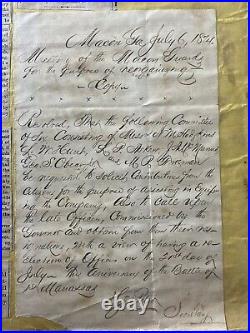 Macon Ga, July 6, 1874
Meeting of the Macon Guards
for the purpose of reorganizing
Copy
x x x x x
Resolved, That the following Committee
of Six Consisting of Messrs
L. W. Hunt,
Geo. S. Obear and M. R. Freeman
be requested to solicit Contributions from the
citizens for the purpose of assisting in Equip-
ing the Company, Also to Call upon
the late Officers, Commissioned by the
Governor and obtain from them their resi-
gnations, with a view of having a re-
election of Officers on the
July the Anniversary of the Battle of
1st Manassas